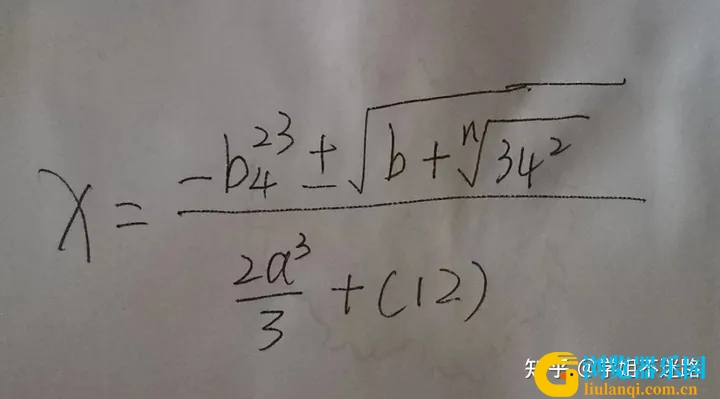 x = \frac{-b_4^{23} \pm \sqrt{b + \sqrt[n]{34^2}}}{\frac{2a^3}{3} + (12)}
知乎 @学姐不迷路
浏览器乐园
liulanqi.com.cn